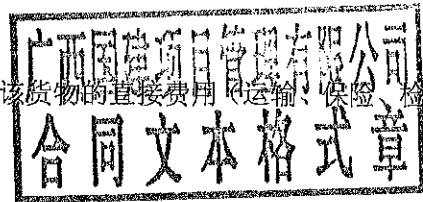 广西国建项目管理有限公司
该货物的直接费用（运输、保险、检
合同文本格式章